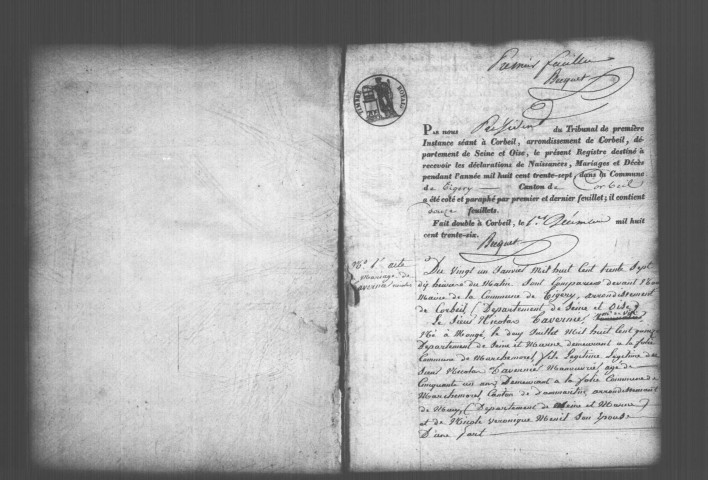 Premier feuillet
Buquet
TIMBRE ROYAL
PAR NOUS Président du Tribunal de première
Instance séant à Corbeil, arrondissement de Corbeil, dé-
partement de Seine et Oise, le présent Registre destiné à
recevoir les déclarations de Naissances, Mariages et Décès
pendant l'année mil huit cent trente-sept dans la Commune
de Tigery Canton de Corbeil
a été coté et paraphé par premier et dernier feuillet; il contient
feuillets.
Fait double à Corbeil, le 1er Décembre mil huit
cent trente-six.
Buquet
No 1er acte
Mariage de
Tavernié
Du vingt un Janvier Mil huit Cent trente Sept
dix heures du Matin Sont Comparus devant Nous
Maire de la Commune de Tigery, arrondissement
de Corbeil (Departement de Seine et Oise)
Le Sieur Nicolas Tavernié,
Né à Mongé, le douz Juillet Mil huit Cent
Departement de Seine et Marne demeurant a la folie
Commune de Marchemoret, fils Legitime Legitime de
Sieur Nicolas Tavernié Manouvrié, age de
Cinquante six ans Demeurant a la folie Commune de
Marchemoret, Canton de Dammartin arrondissement
de Meaux (Departement de Seine et Marne)
et de Nicole Veronique Menil Son Epouse
D'une part